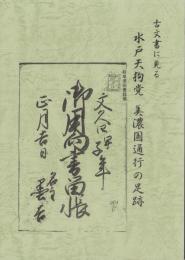 古文書に見る
水戸天狗党 美濃国通行の足跡
文久四甲子年
御用向書留帳
正月吉日